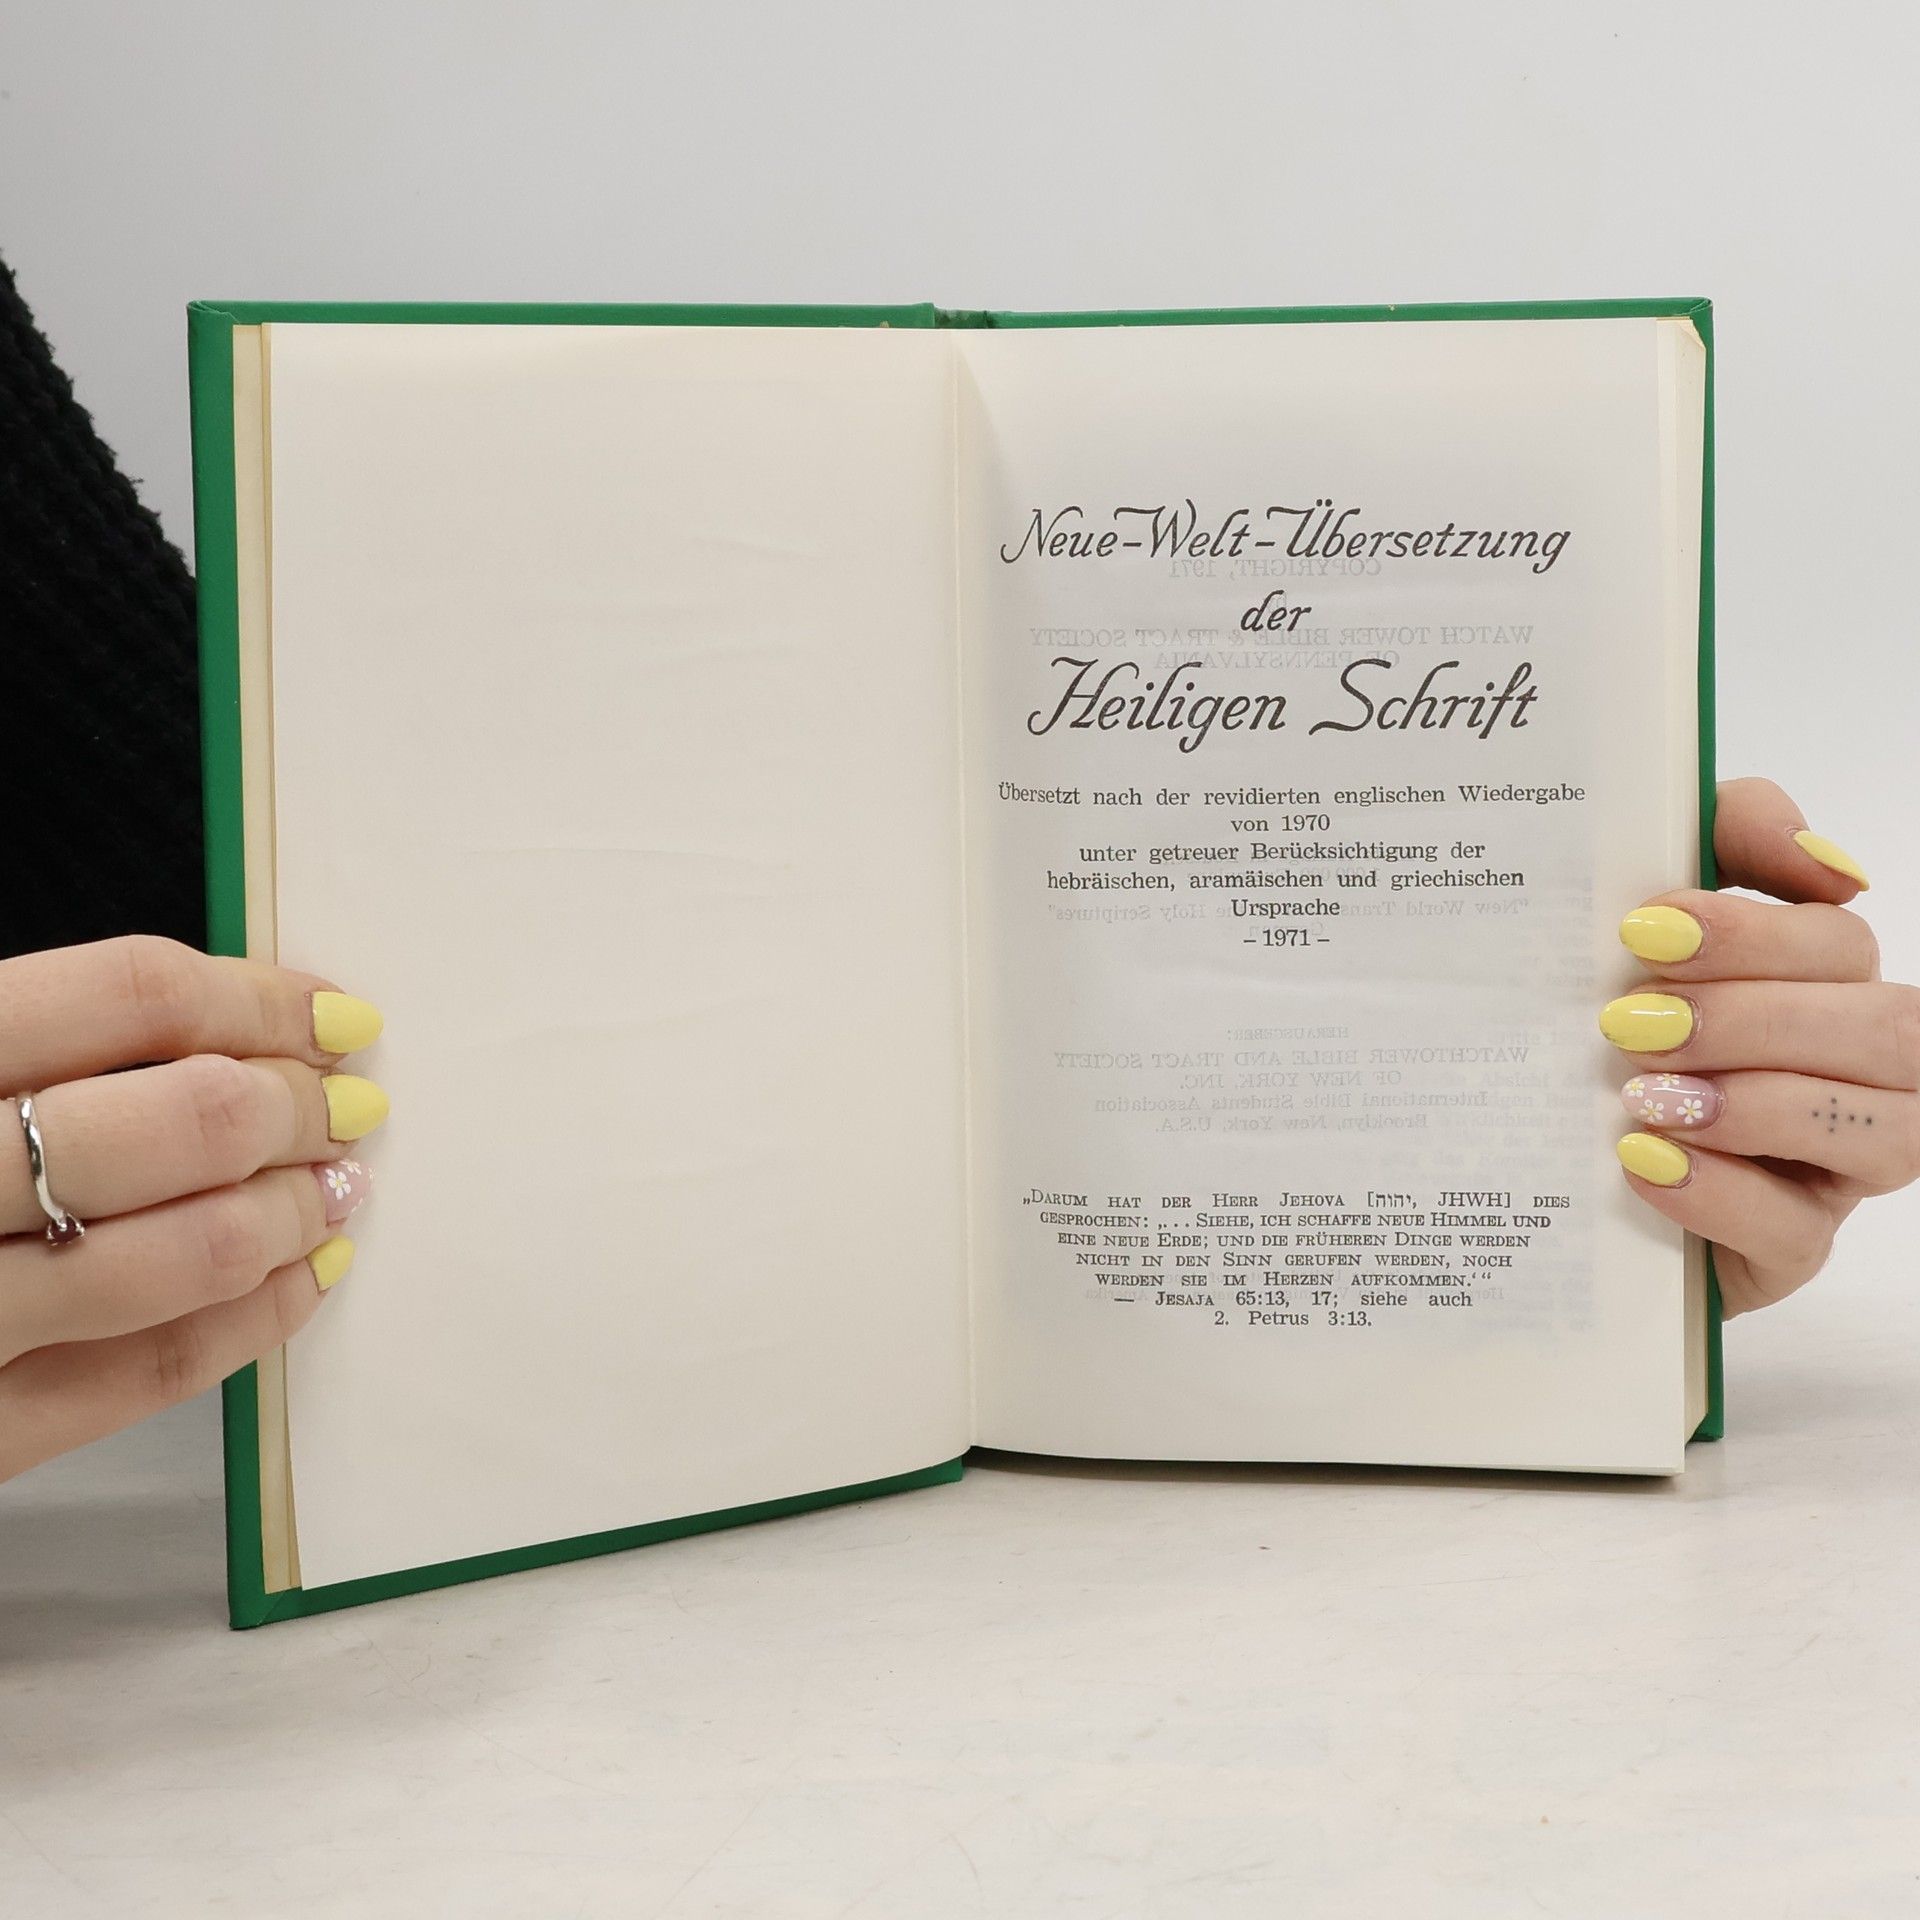 Neue-Welt-Übersetzung
der
Heiligen Schrift
Übersetzt nach der revidierten englischen Wiedergabe
von 1970
unter getreuer Berücksichtigung der
hebräischen, aramäischen und griechischen
Ursprache
– 1971 –
„DARUM HAT DER HERR JEHOVA [יהוה, JHWH] DIES
GESPROCHEN: ‚... SIEHE, ICH SCHAFFE NEUE HIMMEL UND
EINE NEUE ERDE; UND DIE FRÜHEREN DINGE WERDEN
NICHT IN DEN SINN GERUFEN WERDEN, NOCH
WERDEN SIE IM HERZEN AUFKOMMEN.‘“
— JESAJA 65:13, 17; siehe auch
2. Petrus 3:13.